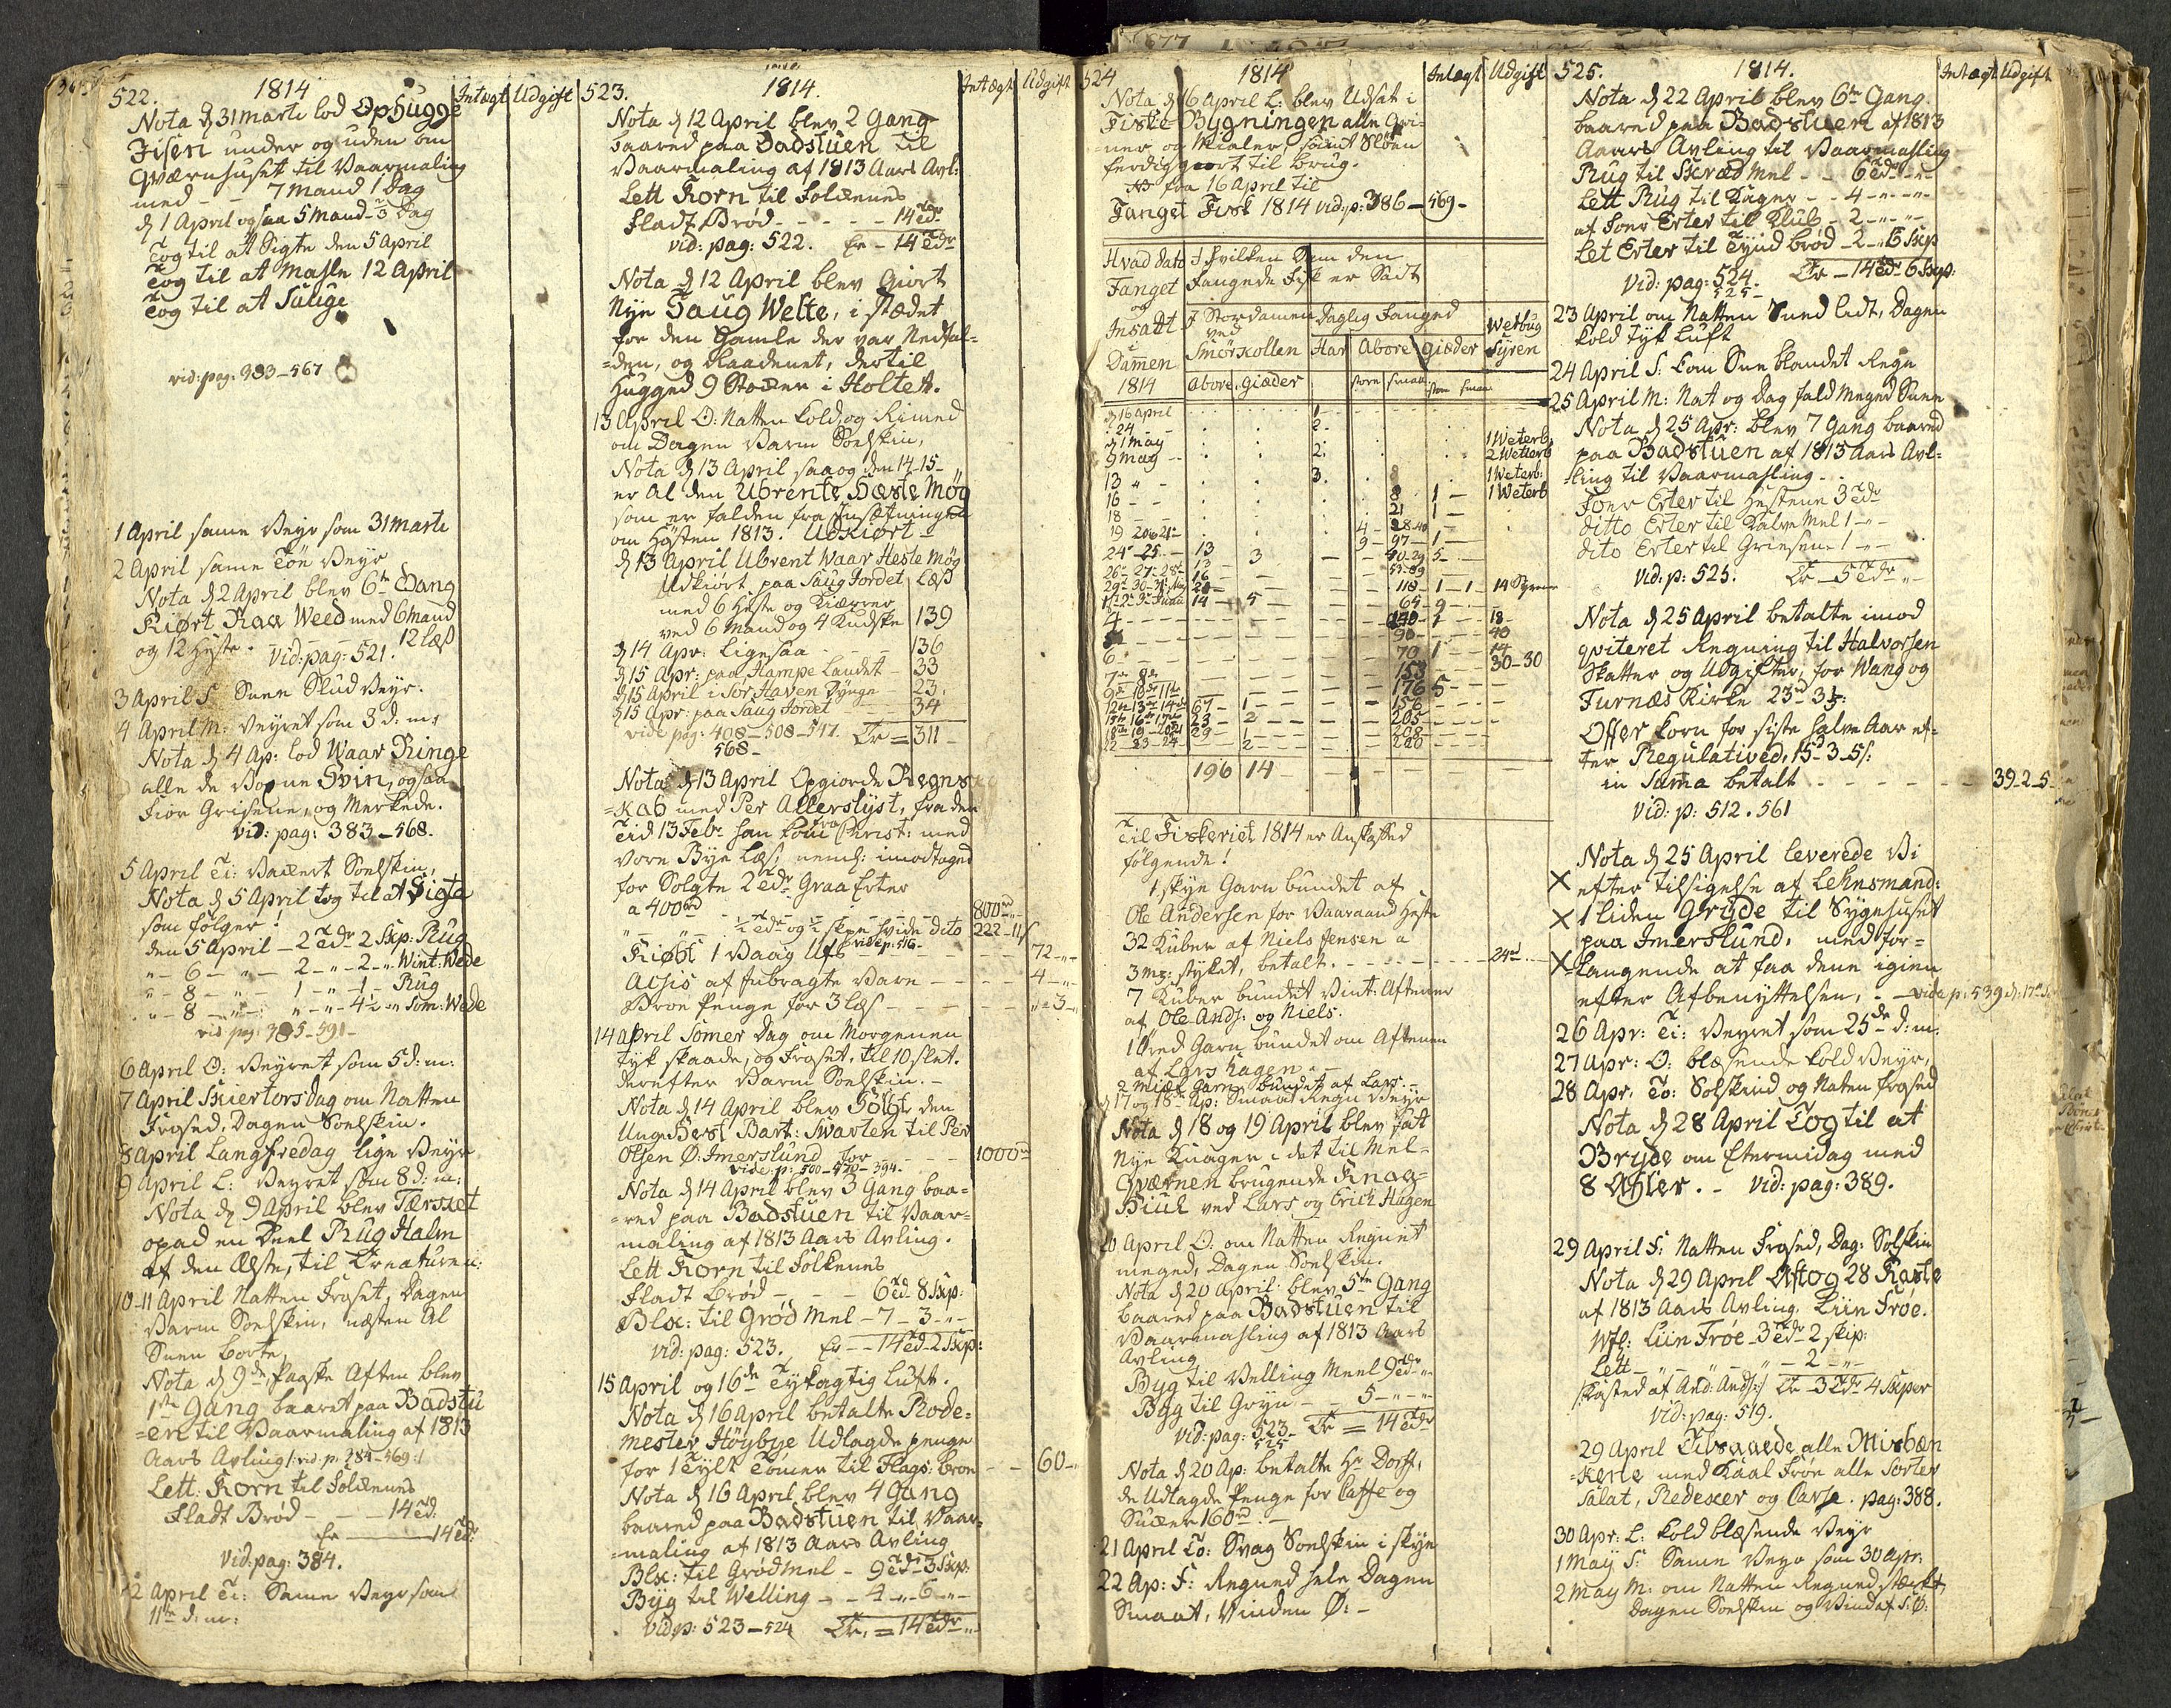 522. 1814 Intægt Udgift
Nota d 31 Marti lod Ophugge
Jisen under og uden om
Qværnhuset til Vaarmaling
med - - 7 Mand 1 Dag
d 1 April ogsaa 5 Mand - Dag
Tog til at Sigte den 5 April
Tog til at Mahle 12 April
Tog til at Sauge
vid: pag: 383-567
1 April same Veyr som 31 Marti
2 April same Veyr
Nota d 2 April blev 6te Gang
Kiørt Raa Weed med 6 Mand
og 12 Heste. 12 Læs
Vid: pag: 521.
3 April S Snee Slud Veyr.
4 April M: Veyret som 3 d: m:
Nota d 4 Ap: lod Waar Ringe
alle de Voxne Svin, ogsaa
Fire Grisene, og Merkede.
Vid: pag: 383-568.
5 April Ti: Soelskin
Nota d 5 April tog til at Sigte
som følger!
den 5 April - 2 Tdr 2 Skp: Rug
" - 6 - " - 2 - " - 2 - " Wint: Wede
" - 8 - " - 1 - " - 1 - Rug
" - 8 - " - " - " - 4½ " Som: Wede
vid pag: 385-591-
6 April O: Veyret som 5 d: m:
7 April Skiertorsdag om Natten
Frosed, Dagen Soelskin.
8 April Langfredag lige Veyr
9 April L: Veyret som 8 d: m:
Nota d 9 April blev Tærsket
opad en Deel Rug Halm
af den Ælste, til Creaturene:
10-11 April Natten Froset, Dagen
Varm Soelskin, næsten Al
Sneen borte,
Nota d 9de Paaske Aften blev
1te Gang baaret paa Badstu
=en til Vaarmaling af 1813
Aars Avling /: vid: p. 384-569:/
Lett: Korn til Folkenes
Fladt Brød - - - 14 Td:
Er - 14 Tdr
Vid: pag: 384.
12 April Ti: Same Veyr som
11te d: m:
523. 1814. Intægt Udgift
Nota d 12 April blev 2 Gang
baared paa Badstuen til
Vaarmaling af 1813 Aars Avl:
Lett Korn til Folkenes
Fladt Brød - - - - - 14 Tdr
vid: pag: 522. Er - 14 Tdr
Nota d 12 April blev Giort
Nye Saug Welte, i stædet
for den Gamle der var Nedfal-
=den, og Raadenet, dertil
Hugged 9 Stokker i Holtet.
13 April O: Natten kold, og Rimed
om Dagen Varm Soelskin,
Nota d 13 April saa og den 14-15-
er Al den Ubrente Heste Møg
som er falden fra Insætningen
om Høsten 1813. Udkiørt
d 13 April Ubrent Waar Heste Møg
Udkiørt paa Saug Jordet Læs
med 6 Heste og Kiærrer
ved 6 Mand og 4 Kudske 139
d 14 Apr: Ligesaa - - - 136
d 15 Apr: paa Hampe Landet - 33
d 15 April i Sør Haven Dynge - 23.
d 15 Apr: paa Saug Jordet - 34
vide pag: 408-508-547. Er = 311
568-
Nota d 13 April Opgiorde Regns
=kab med Per Allerslyst, fra den
Tid 13 Febr han kom fra Christ: med
vore Bye Læs, neml: imodtaged
for Solgte 2 Tdr Graa Erter
a 400 rd - - - - 800 rd
- - ½ Tdr og ½ skpe hvide dito 222-11
vide p: 516-
Kiøbt 1 Vaag Uld - - - - 72-"-
Acsis af Inbragte Vare - - - - 4-"-
Broe Penge for 3 læs - - - - "-3-
14 April Somer Dag om Morgenen
tyk skaade, og Froset, til 10 slet.
derefter Varm Soelskin. -
Nota d 14 April blev Solgt den
Unge Hest Bart: Swarten til Per
Olsen Ø: Imerslund for - - - - 1000 rd
vide p: 500-520-394.
Nota d 14 April blev 3 Gang baa=
=red paa Badstuen til Vaar=
maling af 1813 Aars Avling.
Lett Korn til Folkenes
Fladt Brød - - - 6 Td 8 Skp:
Blk: til Grød Mel - 7 - 3 - "-
vid: pag: 523. Er - 14 Td 2 Skp:
15 April og 16de Tykagtig Luft.
Nota d 16 April betalte Rode=
mester Høybye Udlagde penge
for 1 Tylt Tømer til Flags: broe - - 60-
Nota d 16 April blev 4 Gang
baared paa Badstuen til Vaar=
=maling af 1813 Aars Avling
Blk: til Grødmel - 9 Td 3 Skp:
Byg til Welling - - 4 - " - 6 - "-
Vid: p: 523-524 Er, = 14 Tdr "-
524 1814 Intægt Udgift
Nota d 16 April L: blev Udsat i
Fiske Bygningen alle
og samt Sloen
ferdiggiort til brug.
NB fra 16 April til
Fanget Fisk 1814 vid: p: 386-569-
Hvad Dato I Hvilken Dam den
Fanget Fangede Fisk er Sadt
og
Insatt i Damen 1814
I Stordamen ved Smørkollen
Daglig Fanged
Wetbug Syren
Har Abore Giæder
Abore. Giæder store smaa store smaa
d 16 April 1
" 24 - - 2.
d 1 May 1 Weterb
9 May - - 2: 2 Weterb
13 " - 3 1 Weterb:
16 - - 8 1 - 1 Weterb
18 - - 21 1 -
19 20 & 21 4 - 28-40 1 -
24-25 - 13 3 9 - 97 - 1 -
26-27-28 13 - 40-29 5
29-30-31 May 16 53-89
1-2-3 Junii 20 - 118 - 1 1 14 Syrener
14 - 5 - 64 - 9
4 - - 140 - 1 18
5 - - 90 40
6 - - 70 1 14
7-8 - 153 30-30
9-10-11 176 5
12-13-14 67 - 1 156
15-16-17 23 - 2 205
18-19-20-21 29 1 208
22-23-24 2 220
196 14
Til Fiskeriet 1814 er Anskaffed
følgende!
1 skye Garn bundet af
Ole Andersen for Vaaraand Heste
32 Kuber af Niels Jensen a
3 mz: styket, betalt. - - - - - 24 rd
7 Kuber bundet Vint: Aftener
af Ole Ands: og Niels.
1 Ored Garn bundet om Aftenen
af Lars Hagen. -
2 Garn bundet af Lars. -
d 17 og 18de Ap: Smaat Regn Veyr
Nota d 18 og 19 April blev sat
Nye Knager i det til Mel=
Qværnen brugende Knag=
Hiul ved Lars og Erich Hagen
20 April O: om Natten Regnet
meged, Dagen Soelskin.
Nota d 20 April: blev 5te Gang
baared paa Badstuen til
Vaarmahling af 1813 Aars
Avling
Byg til Velling Meel 9 Tdr "-
Byg til Gryn - - 5 - " - "-
Vid: pag: 523- Er = 14 Tdr
525
Nota d 20 Ap: betalte Hr Dorff,
de Udlagde Penge for Caffe og
Sucker 160 rd. -
21 April To: Svag Soelskin i skye
22 Ap: F: Regned hele Dagen
Smaat, Vinden Ø: -
525. 1814. Intægt Udgift
Nota d 22 April blev 6te Gang
baared paa Badstuen af 1813
Aars Avling til Vaarmahling
Rug til Skræd Mel - - 6 Tdr "-
Lett Rug til Kager - - 4 - " - "-
af Foer Erter til Klub - 2 - " - "-
Let Erter til Tynd brød - 2 - " 6 Skp
Vid: pag: 524. Er - 14 Tdr 6 Skp:
525-
23 April om Natten Sneed lidt, Dagen
kold tyk Luft
24 April S: kom Snee blandet Regn
25 April M: Nat og Dag fald Meged Snee
Nota d 25 Apr: blev 7 Gang baared
paa Badstuen af 1813 Aars Avl=
ling til Vaarmahling - -
Foer Erter til Hestene 3 Tdr
ditto Erter til Kalve Mel 1 - " -
dito Erter til Griesene 1 - " -
Vid: p: 525. Er - 5 Tdr "-
Nota d 25 April betalte imod
qviteret Regning til Halvorsen
Skatter og Udgifter, for Wang og
Furnæs Kirke 23 rd 3
Offer korn for siste halve Aar ef=
ter Regulatived, 15 - 3 - 5 s:
in Suma betalt - - - - - 39-2-5-
Vid: p: 512. 561
Nota d 25 April leverede Vi
X efter tilsigelse af Lehnsmand:
X 1 liden Gryde til Sygehuset
paa Imerslund, med for=
X =langende at faa dene igien
efter Afbenyttelsen. - vide p: 539 d: 17de
26 Apr: Ti: Veyret som 25de d: m:
27 Apr: O: blæsende kold Veyr,
28 Apr. To: Solskind og Naten frosed
Nota d 28 April Tog til at
Bryde om Eftermidag med
8 . - vid: pag: 389.
29 April F: Natten Frosed, Dag: Solskin
Nota d 29 April Aftog 28 Karle
af 1813 Aars Avling. Liin Frøe.
Wfl: Liin Frøe - 3 Tdr 2 skp:
Lett - " - " - " - 2 - "-
/: Kasted af And: Ands:/ Er - 3 Tdr 4 Skper
Vid: pag: 519.
29 April Tilsaaede alle Misbæn
=kene med Kaal Frøe alle Sorter
Salat, Redeker og Carse. pag: 388.
30 Apr: L: kold blæsende Veyr
1 May S: Same Veyr som 30 Apr:
2 May M: om Natten Regned stærkt
Dagen Soelskin og Vind af S: Ø: